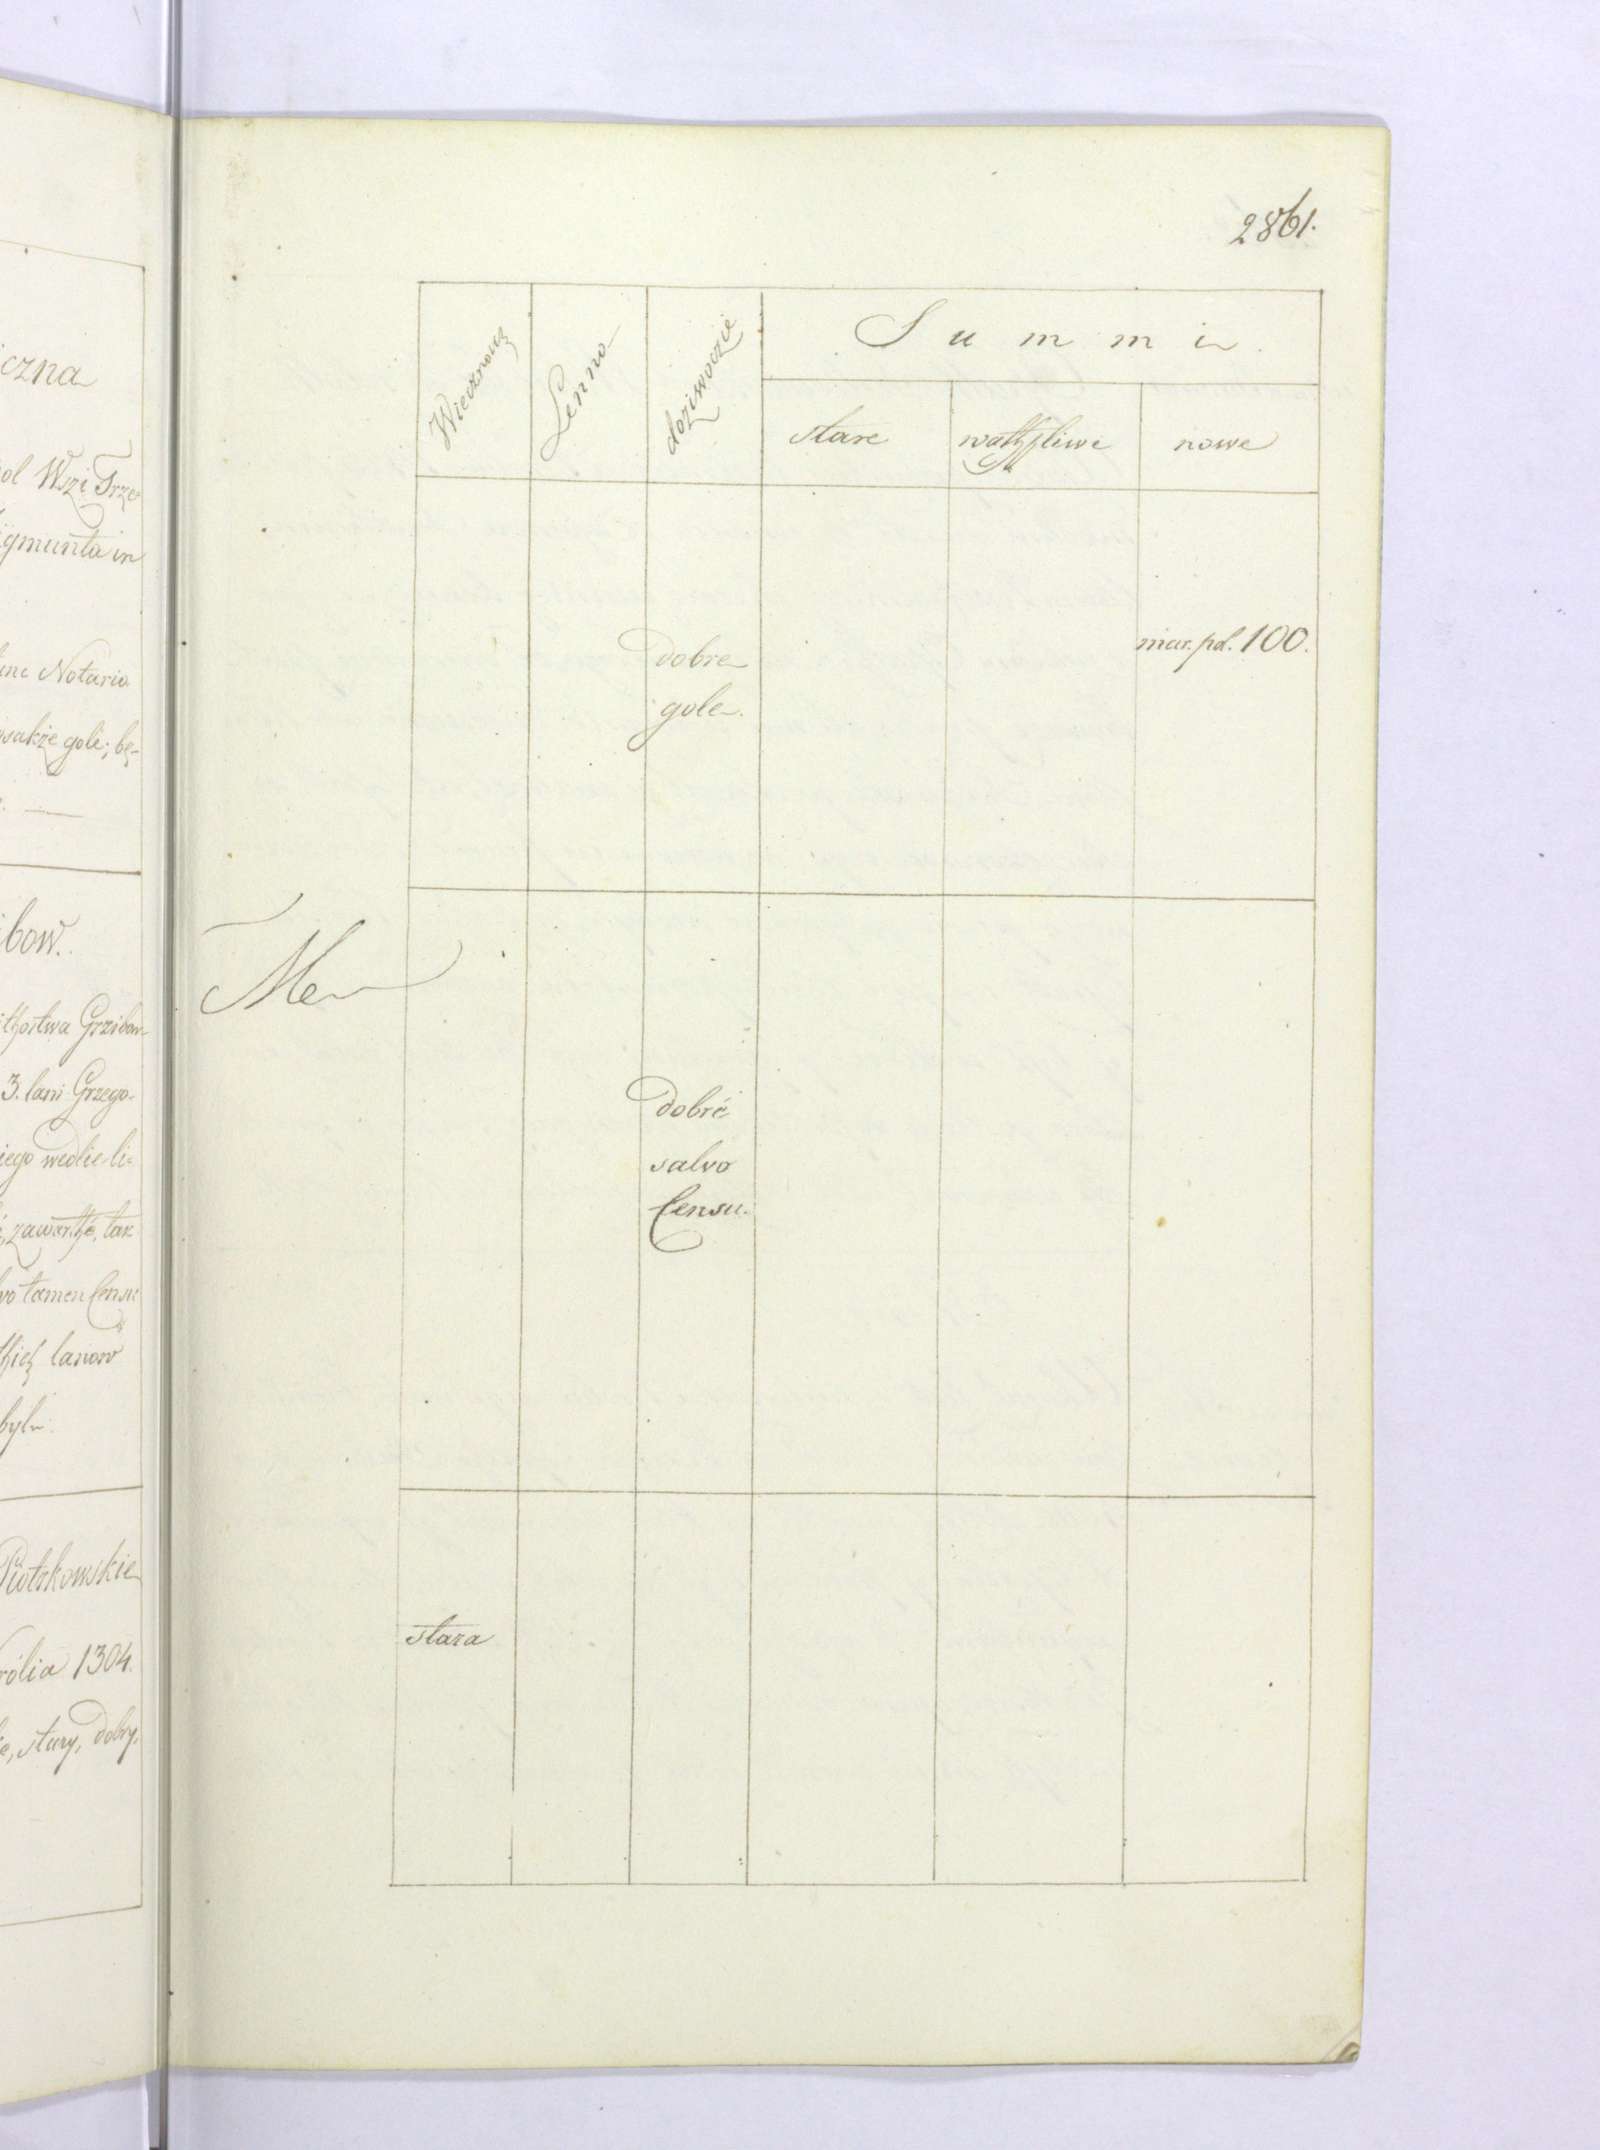 czna
ol Wszi Trze
ÿgmunta in
Notario
sakże goli; bę-
bow.
thostwa Grzibow-
3. lani Grzego-
iego wedlie li-
zawarthé, tak
vo tamen Censu
thich lanow
byle
Piotrkowskie
rólia 1304.
stary, dobry,
2861.
Wieczność
Lenno
dożiwocie
Summi
stare
wathpliwe
nowe
dobre
gole
mar. pol. 100.
dobré
salvo
Censu.
stara